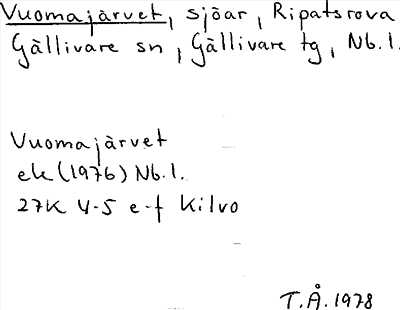 Vuomajärvet, sjöar, Ripatsrova
Gällivare sn, Gällivare tg, Nb.l.
Vuomajärvet
ek (1976) Nb.l.
27K 4-5 e-f Kilvo
T.Å. 1978